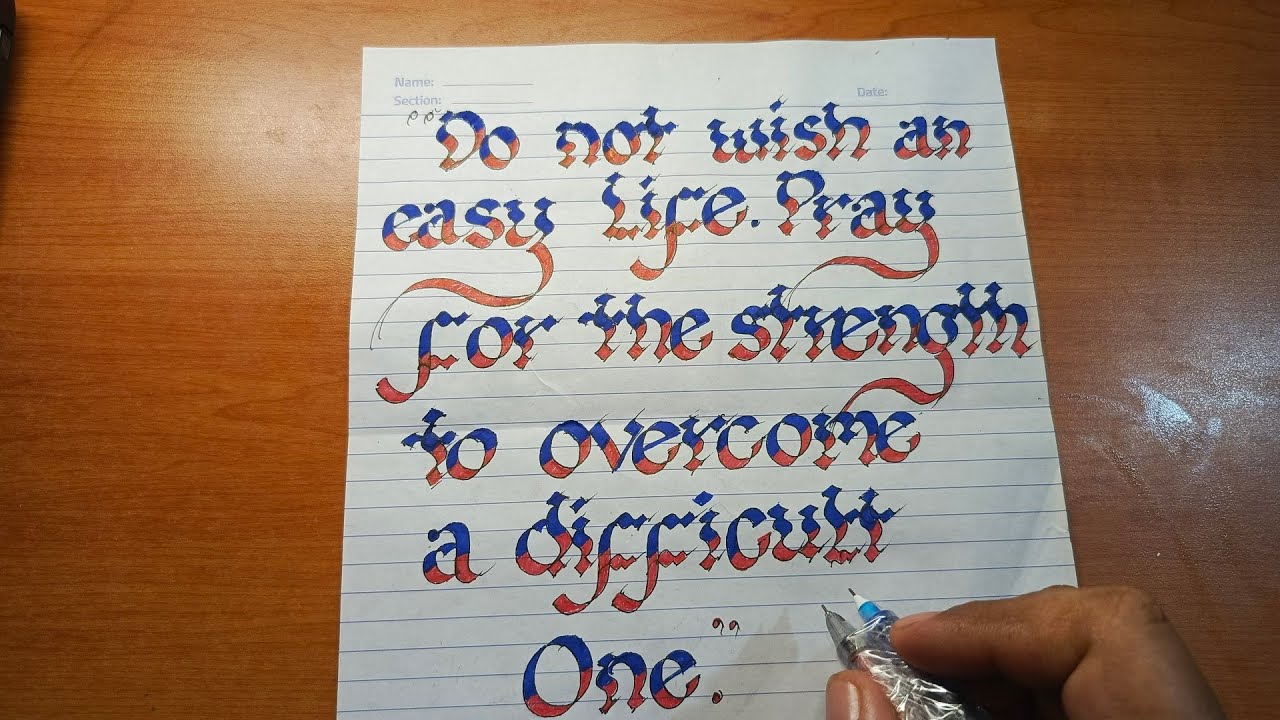 Name:
Section:
Date:
"Do not wish an
easy Life. Pray
for the strength
to overcome
a difficult
One."